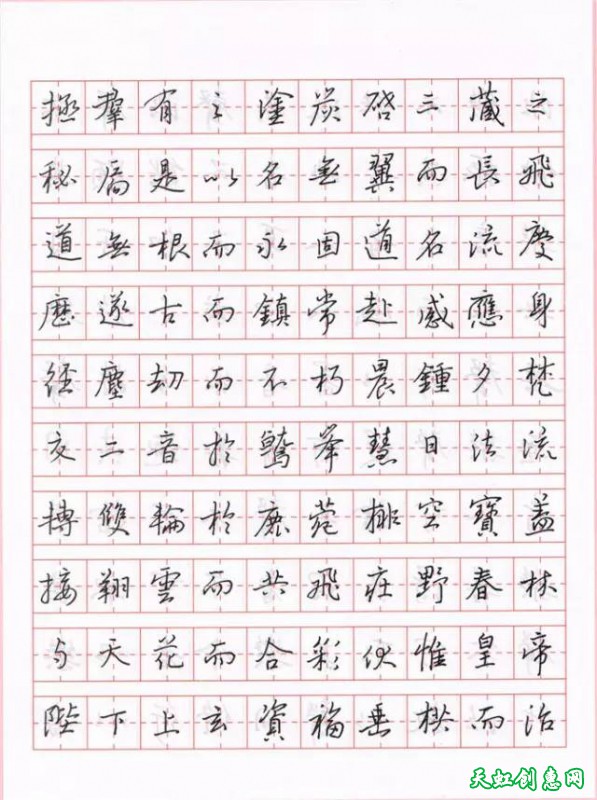 拯羣有之塗炭啓三藏之
秘扃是以名無翼而長飛
道無根而永固道名流慶
歷遂古而鎮常赴感應身
經塵劫而不朽晨鐘夕梵
交二音於鷲峯慧日法流
轉雙輪於鹿苑排空寶盖
接翔雲而共飛莊野春林
与天花而合彩伏惟皇帝
陛下上玄資福垂拱而治
天虹创意网